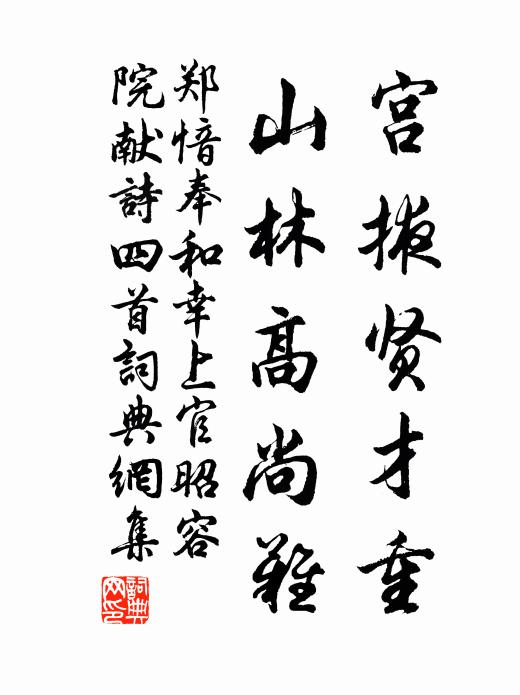 宫掖贤才重
山林高尚难
郑愔奉和幸上官昭容
院献詩四首詞典網集
詞典
网印